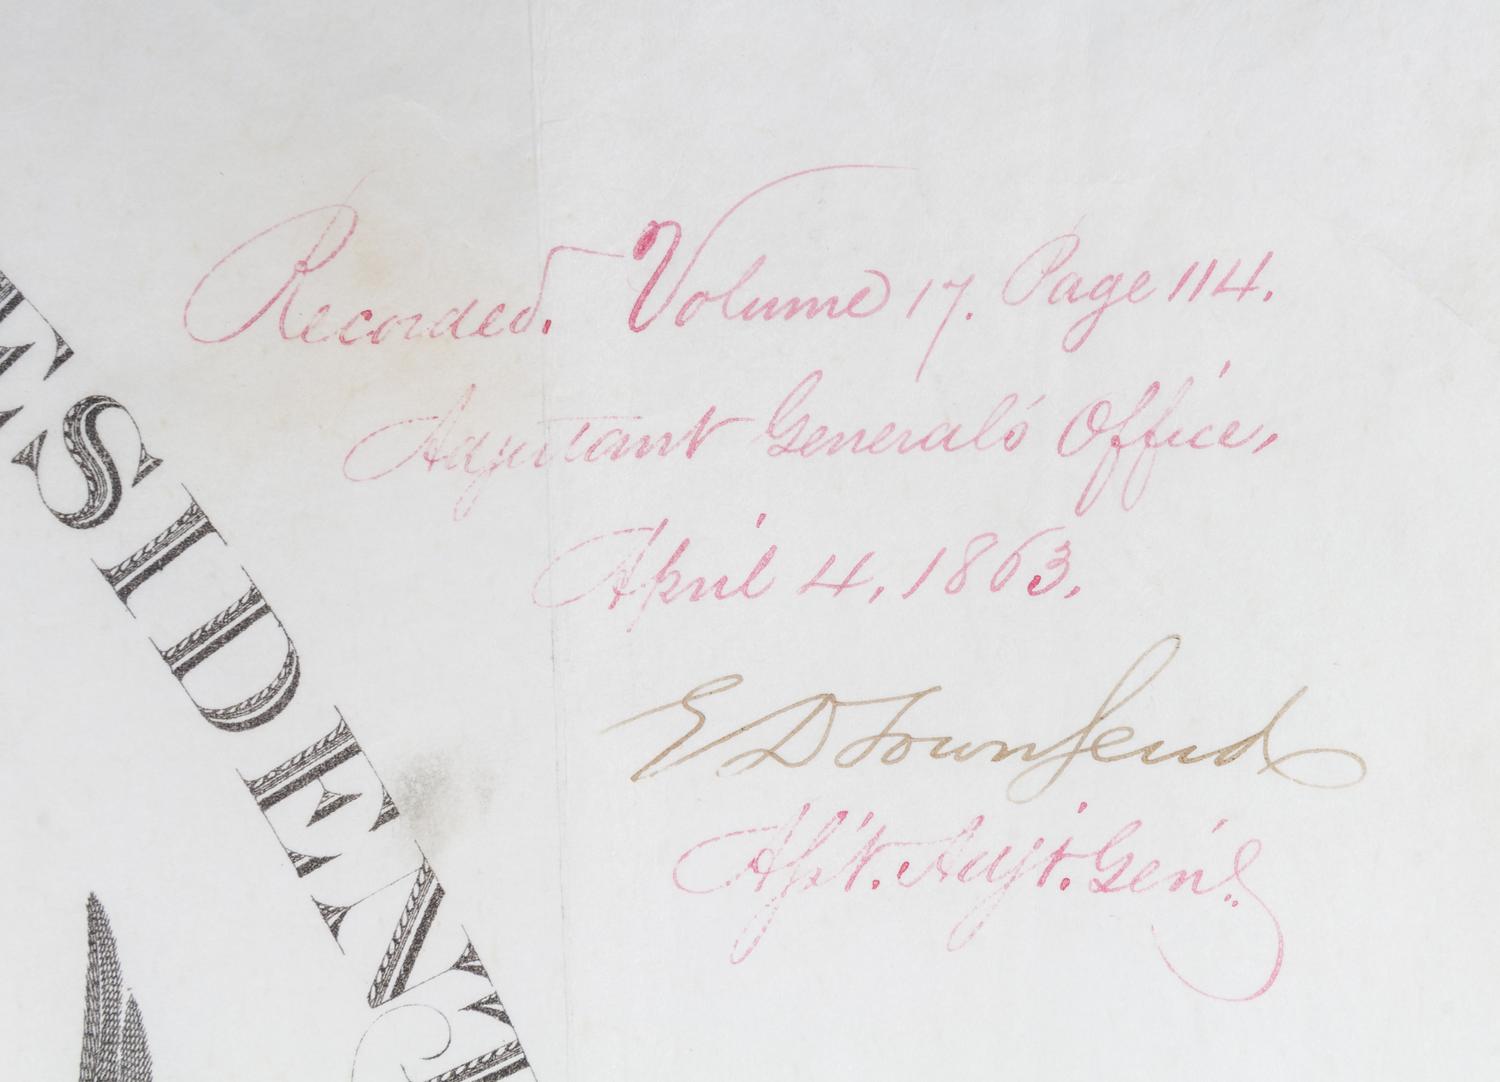 Recorded. Volume 17. Page 114.
Adjutant General's Office,
April 4, 1863.
E D Townsend
Asst. Adjt. Genl.
ESIDENT